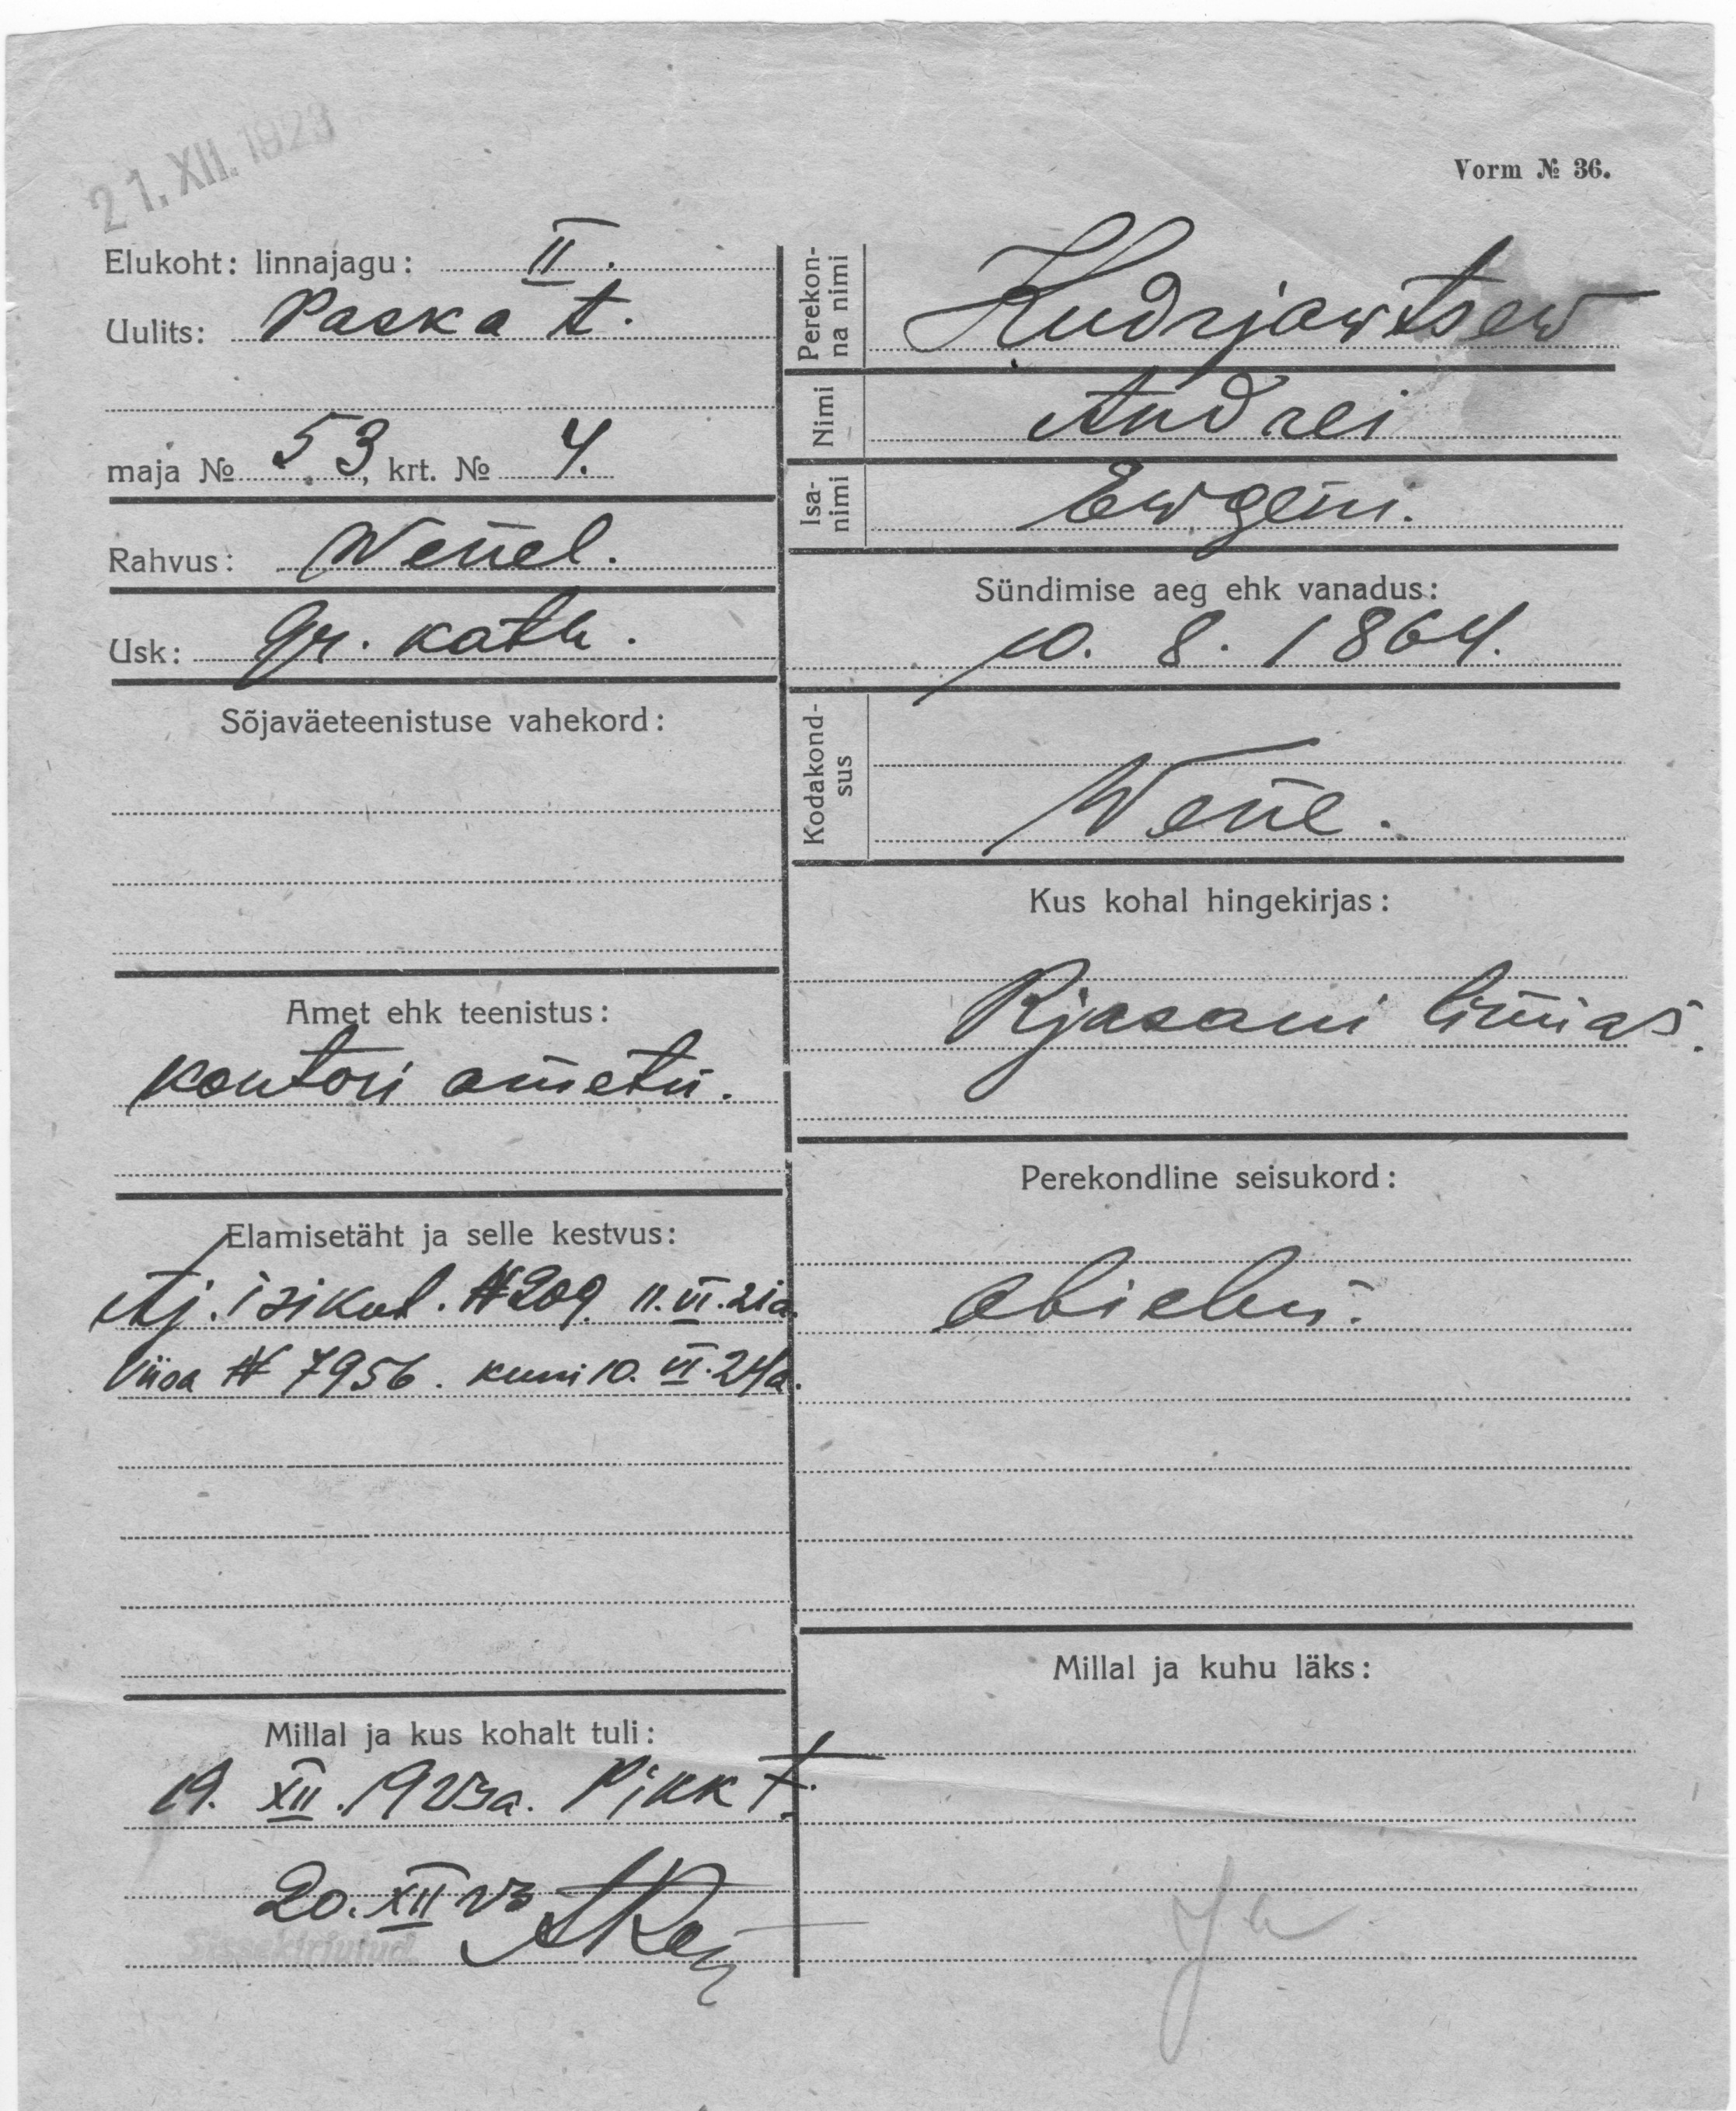 21. XII. 1923
Vorm № 36.
Elukoht: linnajagu: II.
Uulits: Paska t.
maja № 53, krt. № 4.
Rahvus: Wenel.
Usk: Gr. kath.
Sõjaväeteenistuse vahekord:
Amet ehk teenistus:
kontori ametn.
Elamisetäht ja selle kestvus:
Aj. isikut. № 209. 11. VI. 21 a.
Viisa № 7956. kuni 10. VI. 24 a.
Millal ja kus kohalt tuli:
19. XII. 1923 a. Pikk t.
20. XII 23
Sissekirjutud
Perekon-
na nimi
Kudrjawtsew
Nimi Andrei
Isa-
nimi
Ewgeni.
Sündimise aeg ehk vanadus:
10. 8. 1864.
Kodakond-
sus
Wene.
Kus kohal hingekirjas:
Rjasani linnas.
Perekondline seisukord:
abielus.
Millal ja kuhu läks: